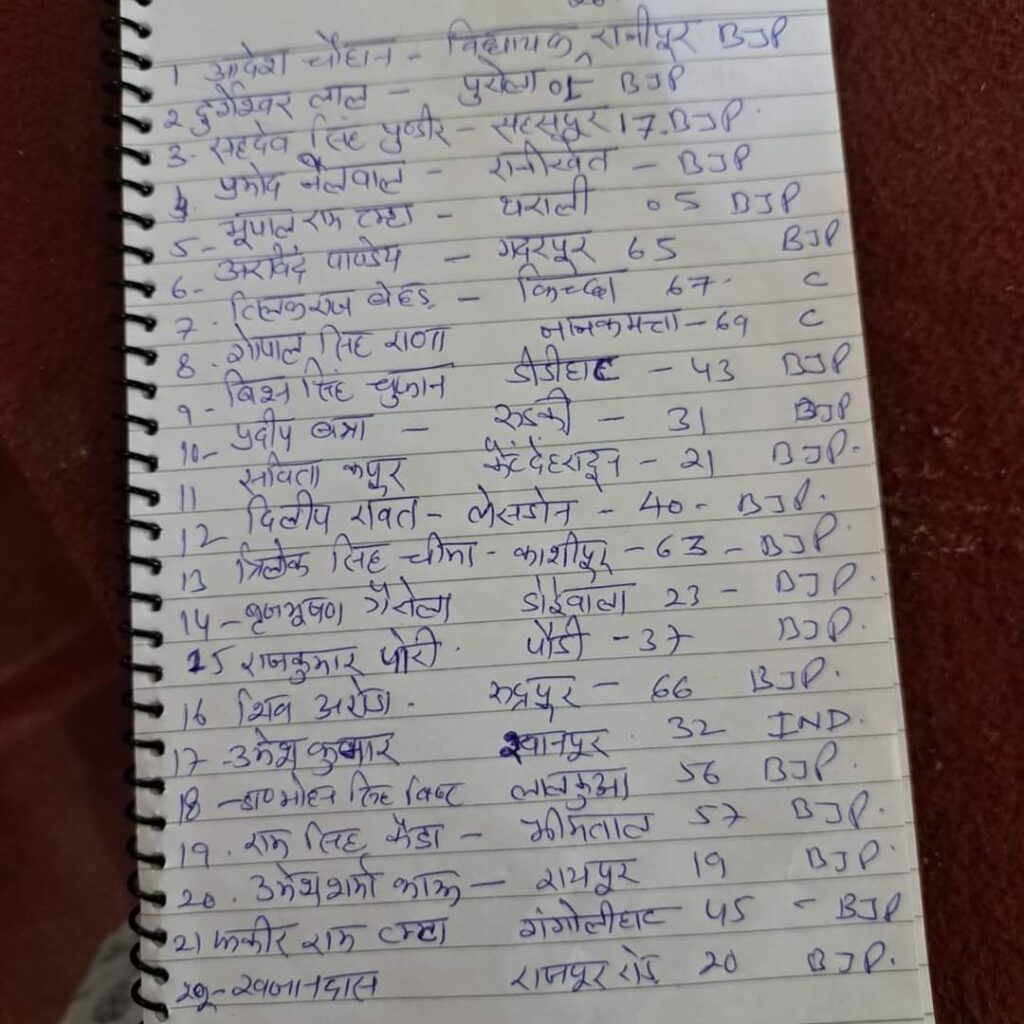 1 आदेश चौहान - विधायक रानीपुर BJP
2 दुर्गेश्वर लाल - पुरोला 01 BJP
3. सहदेव सिंह पुण्डीर - सहसपुर 17. BJP.
4. प्रमोद नैलवाल - रानीखेत - BJP
5 - भूपाल राम टम्टा - थराली 05 BJP
6 - अरविंद पाण्डेय - गदरपुर 65 BJP
7. तिलकराज बेहड़ - किच्छा 67. C
8. गोपाल सिंह राणा नानकमत्ता - 69 C
9 - सिंह चुफाल डीडीहाट - 43 BJP
10 - प्रदीप बत्रा - रुड़की - 31 BJP
11 सविता कपुर देहरादून - 21 BJP.
12 दिलीप रावत - लेसडोन - 40 - BJP.
13 त्रिलोक सिंह चीमा - काशीपुर - 63 - BJP.
14 - बृजभूषण गैरोला डोईवाला 23 - BJP.
15 राजकुमार पोरी. पौडी - 37 BJP.
16 शिव अरोडा. रुद्रपुर - 66 BJP.
17 - उमेश कुमार खानपुर. 32 IND.
18 - डा० मोहन सिंह बिष्ट लालकुआ 56 BJP.
19. राम सिंह कैडा - भीमताल 57 BJP.
20. उमेश शर्मा काऊ - रायपुर 19 BJP.
21 फकीर राम टम्टा गंगोलीहाट 45 - BJP
22 - खजानदास राजपुर रोड 20 BJP.